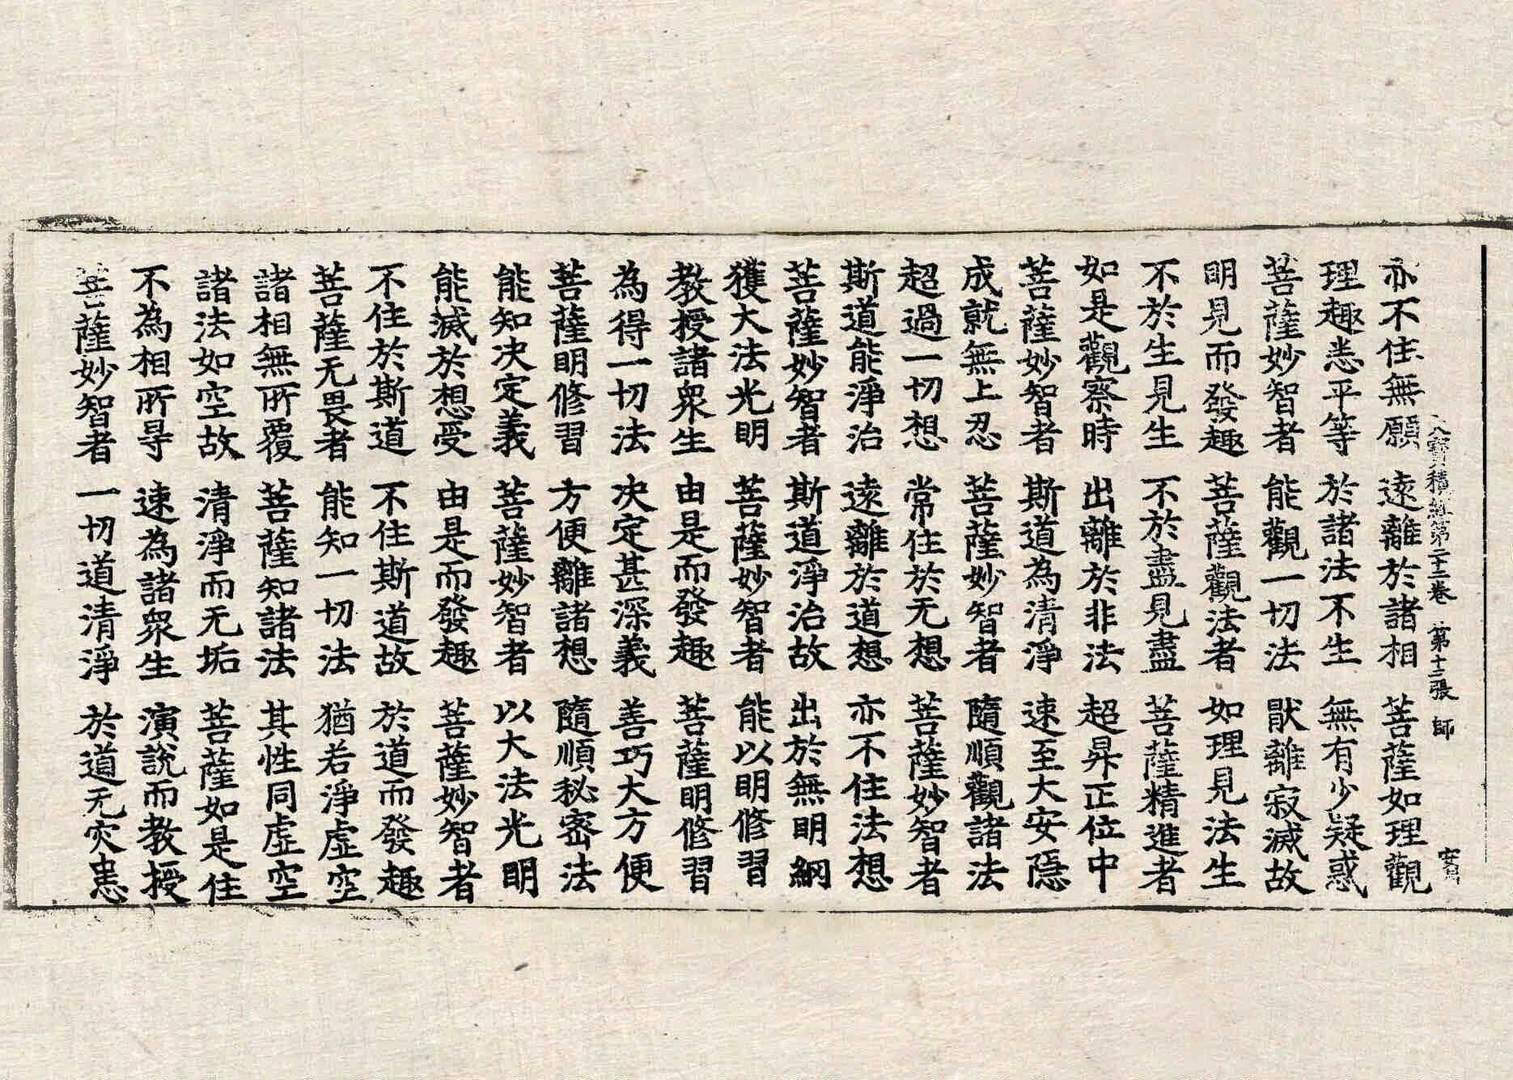 大寶積經第二十二卷 第十二張 師
亦不住無願 遠離於諸相 菩薩如理觀
理趣悉平等 於諸法不生 無有少疑惑
菩薩妙智者 能觀一切法 猒離寂滅故
明見而發趣 菩薩觀法者 如理見法生
不於生見生 不於盡見盡 菩薩精進者
如是觀察時 出離於非法 超昇正位中
菩薩妙智者 斯道為清淨 速至大安隱
成就無上忍 菩薩妙智者 隨順觀諸法
超過一切想 常住於无想 菩薩妙智者
斯道能淨治 遠離於道想 亦不住法想
菩薩妙智者 斯道淨治故 出於無明網
獲大法光明 菩薩妙智者 能以明修習
教授諸衆生 由是而發趣 菩薩明修習
為得一切法 决定甚深義 善巧大方便
菩薩明修習 方便離諸想 隨順秘密法
能知决定義 菩薩妙智者 以大法光明
能滅於想受 由是而發趣 菩薩妙智者
不住於斯道 不住斯道故 於道而發趣
菩薩无畏者 能知一切法 猶若淨虛空
諸相無所覆 菩薩知諸法 其性同虛空
諸法如空故 清淨而无垢 菩薩如是住
不為相所㝵 速為諸衆生 演說而教授
菩薩妙智者 一切道清淨 於道无灾恚